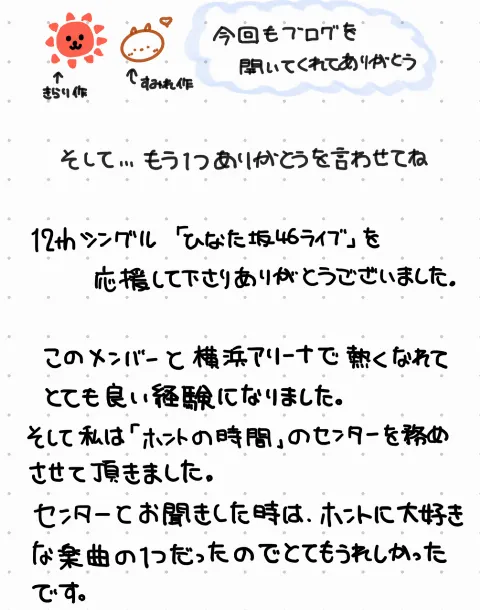 今回もブログを
開いてくれてありがとう
↑
きらり作
↑
すみれ作
そして...もう1つありがとうを言わせてね
12thシングル「ひなた坂46ライブ」を
応援して下さりありがとうございました。
このメンバーと横浜アリーナで熱くなれて
とても良い経験になりました。
そして私は「ホントの時間」のセンターを務め
させて頂きました。
センターとお聞きした時は、ホントに大好き
な楽曲の1つだったのでとてもうれしかった
です。